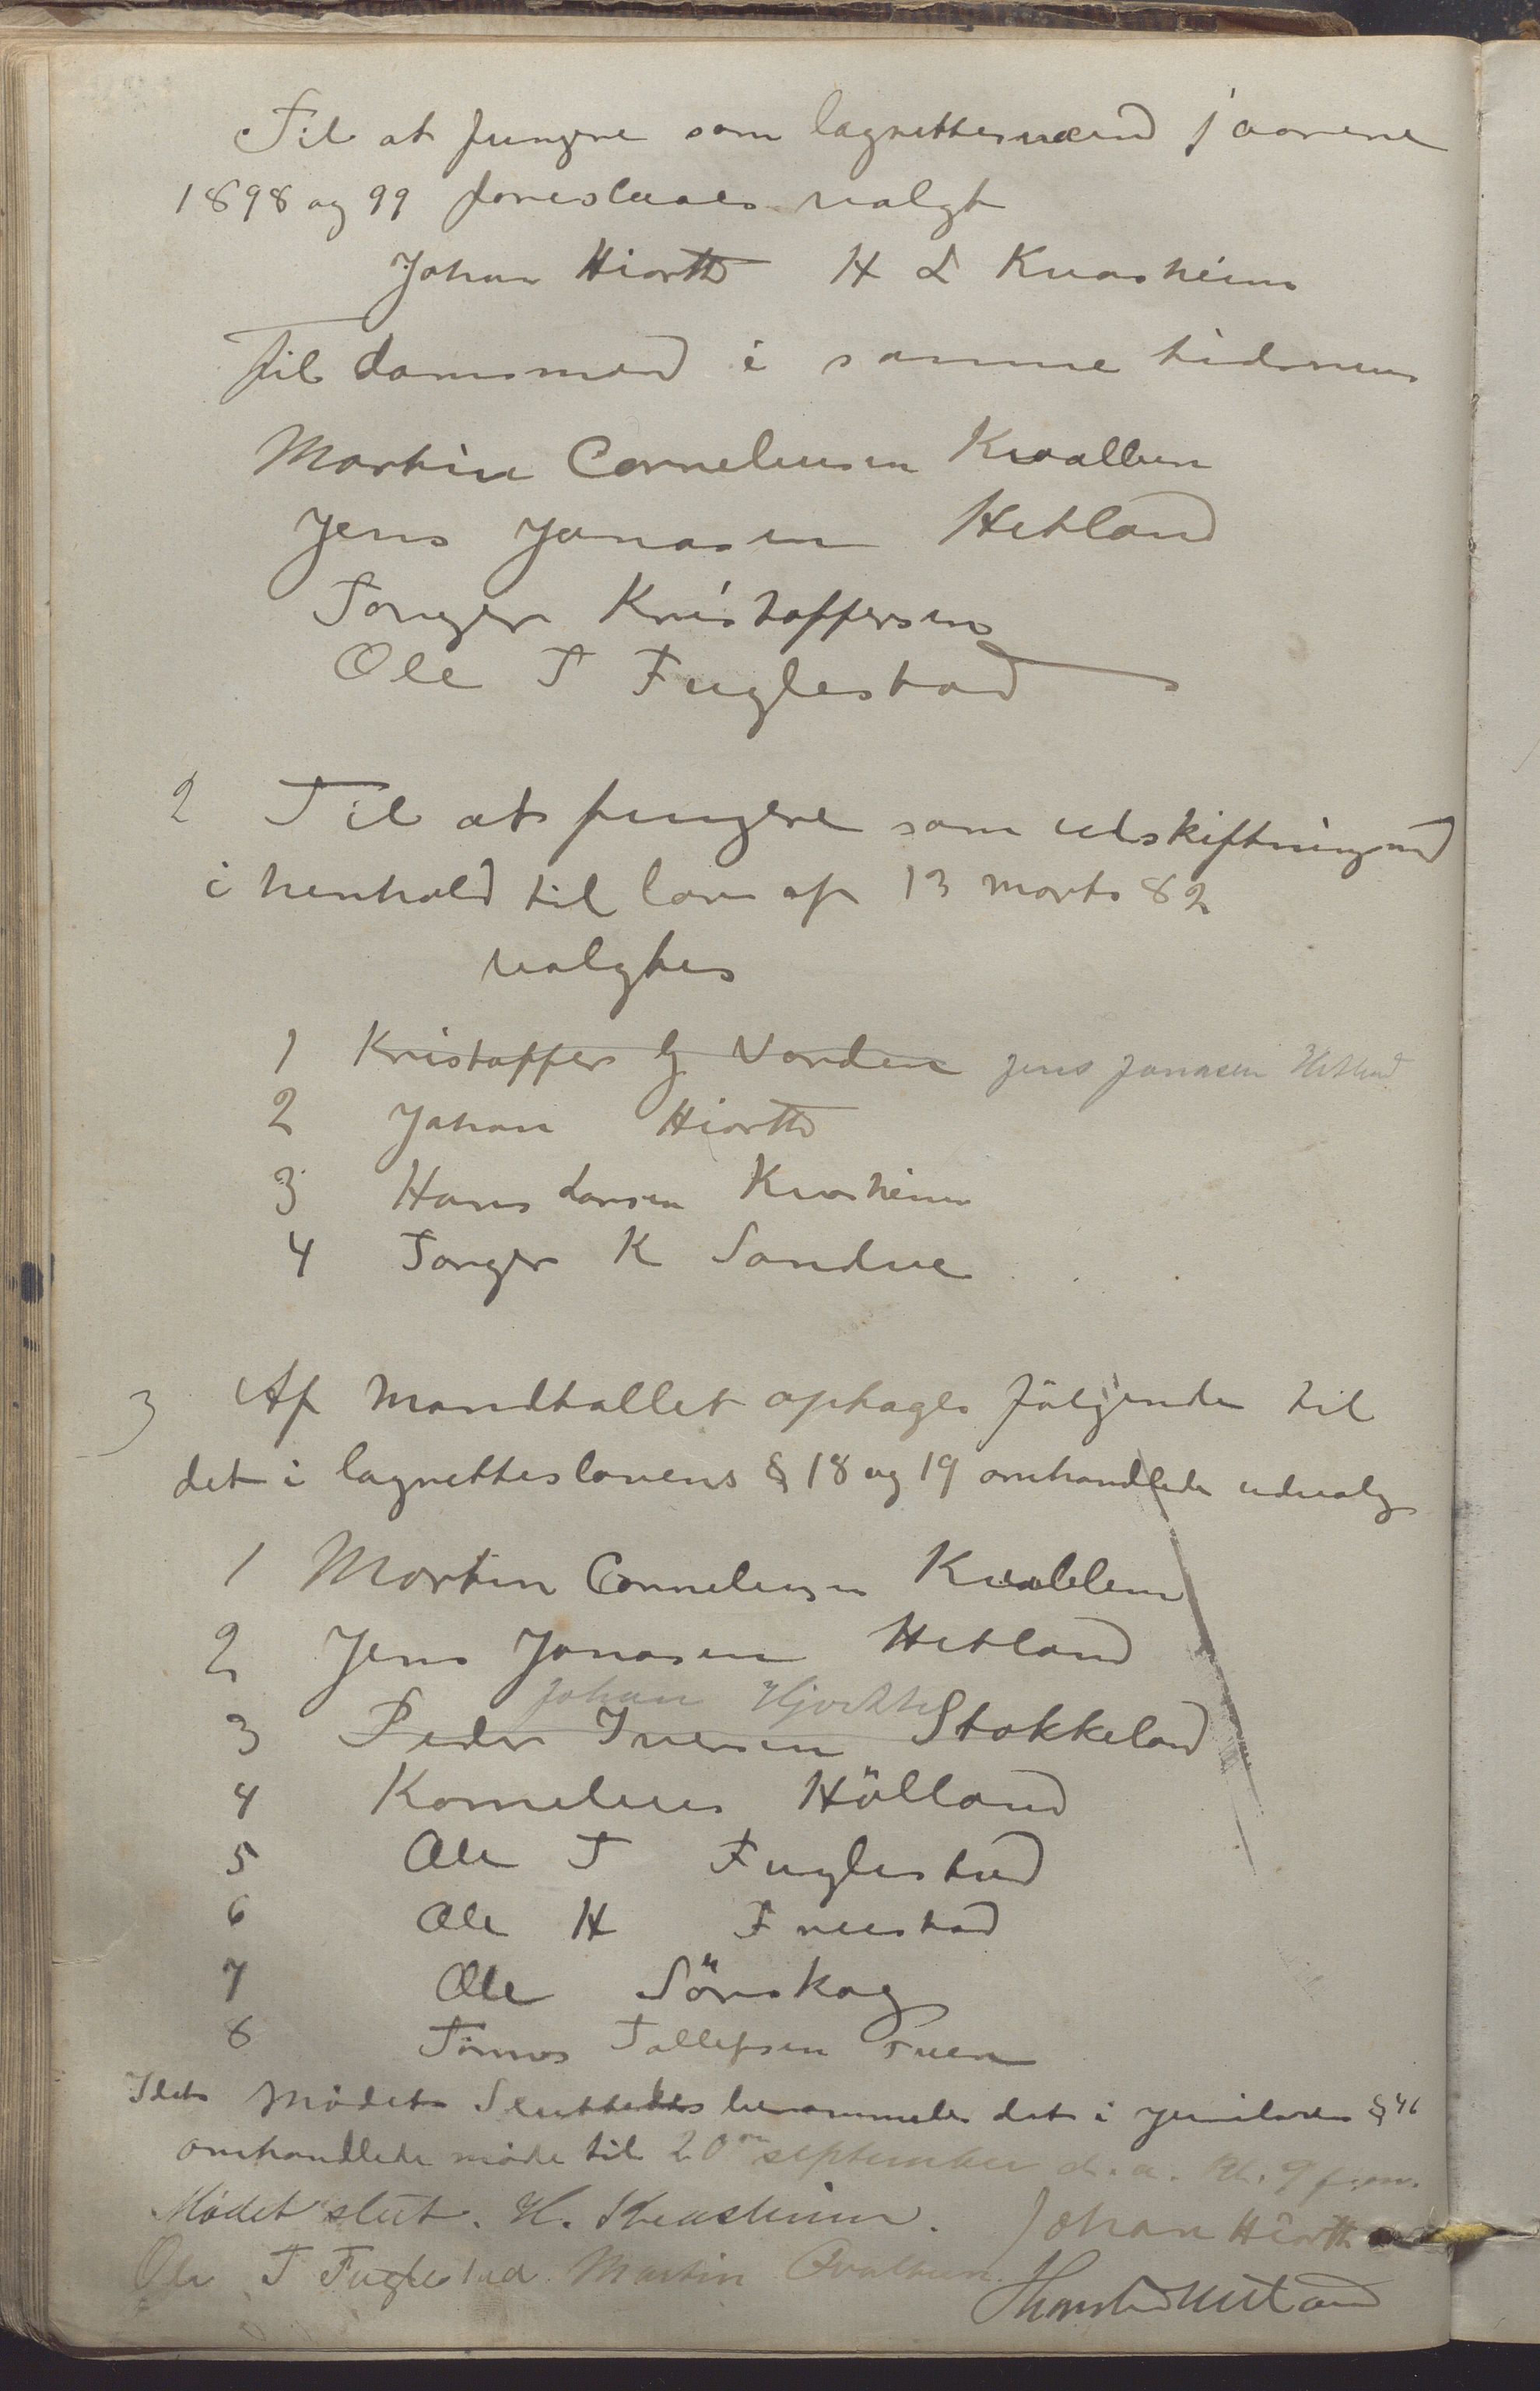 Til at fungere som lagrettesmænd i aarene
1898 og 99 foreslaaes valgt
Johan Hiorth H L Kvasheim
Til domsmænd i samme tidsrum
Martin Corneliusen Kvallen
Jens Jonasen Hetland
Torger Kristoffersen
Ole T Fuglestad
2 Til at fungere som udskiftningsmænd
i henhold til lov af 13 marts 82
valgtes
1 Kristoffer G Varden Jens Jonasen Hetland
2 Johan Hiorth
3 Hans Larsen Kvasheim
4 Torger K Sandve
3 Af Mandtallet optages følgende til
det i lagretteslovens § 18 og 19 omhandlede udvalg
1 Martin Corneliusen Kvallen
2 Jens Jonasen Hetland
Johan Hjorth
3 Peder Iversen Stokkeland
4 Kornelius Hölland
5 Ole T Fuglestad
6 Ole H Frøestad
7 Ole Sörskog
8 Tønnes Tollefsen
I det Mødet Sluttedes berammedes det i jurilovens § 46
omhandlede møde til 20 september d.a. Kl. 9 f.m.
Mødet slut. H. Kvasheim. Johan Hiorth
Ole T Fuglestad Martin Kvallen.